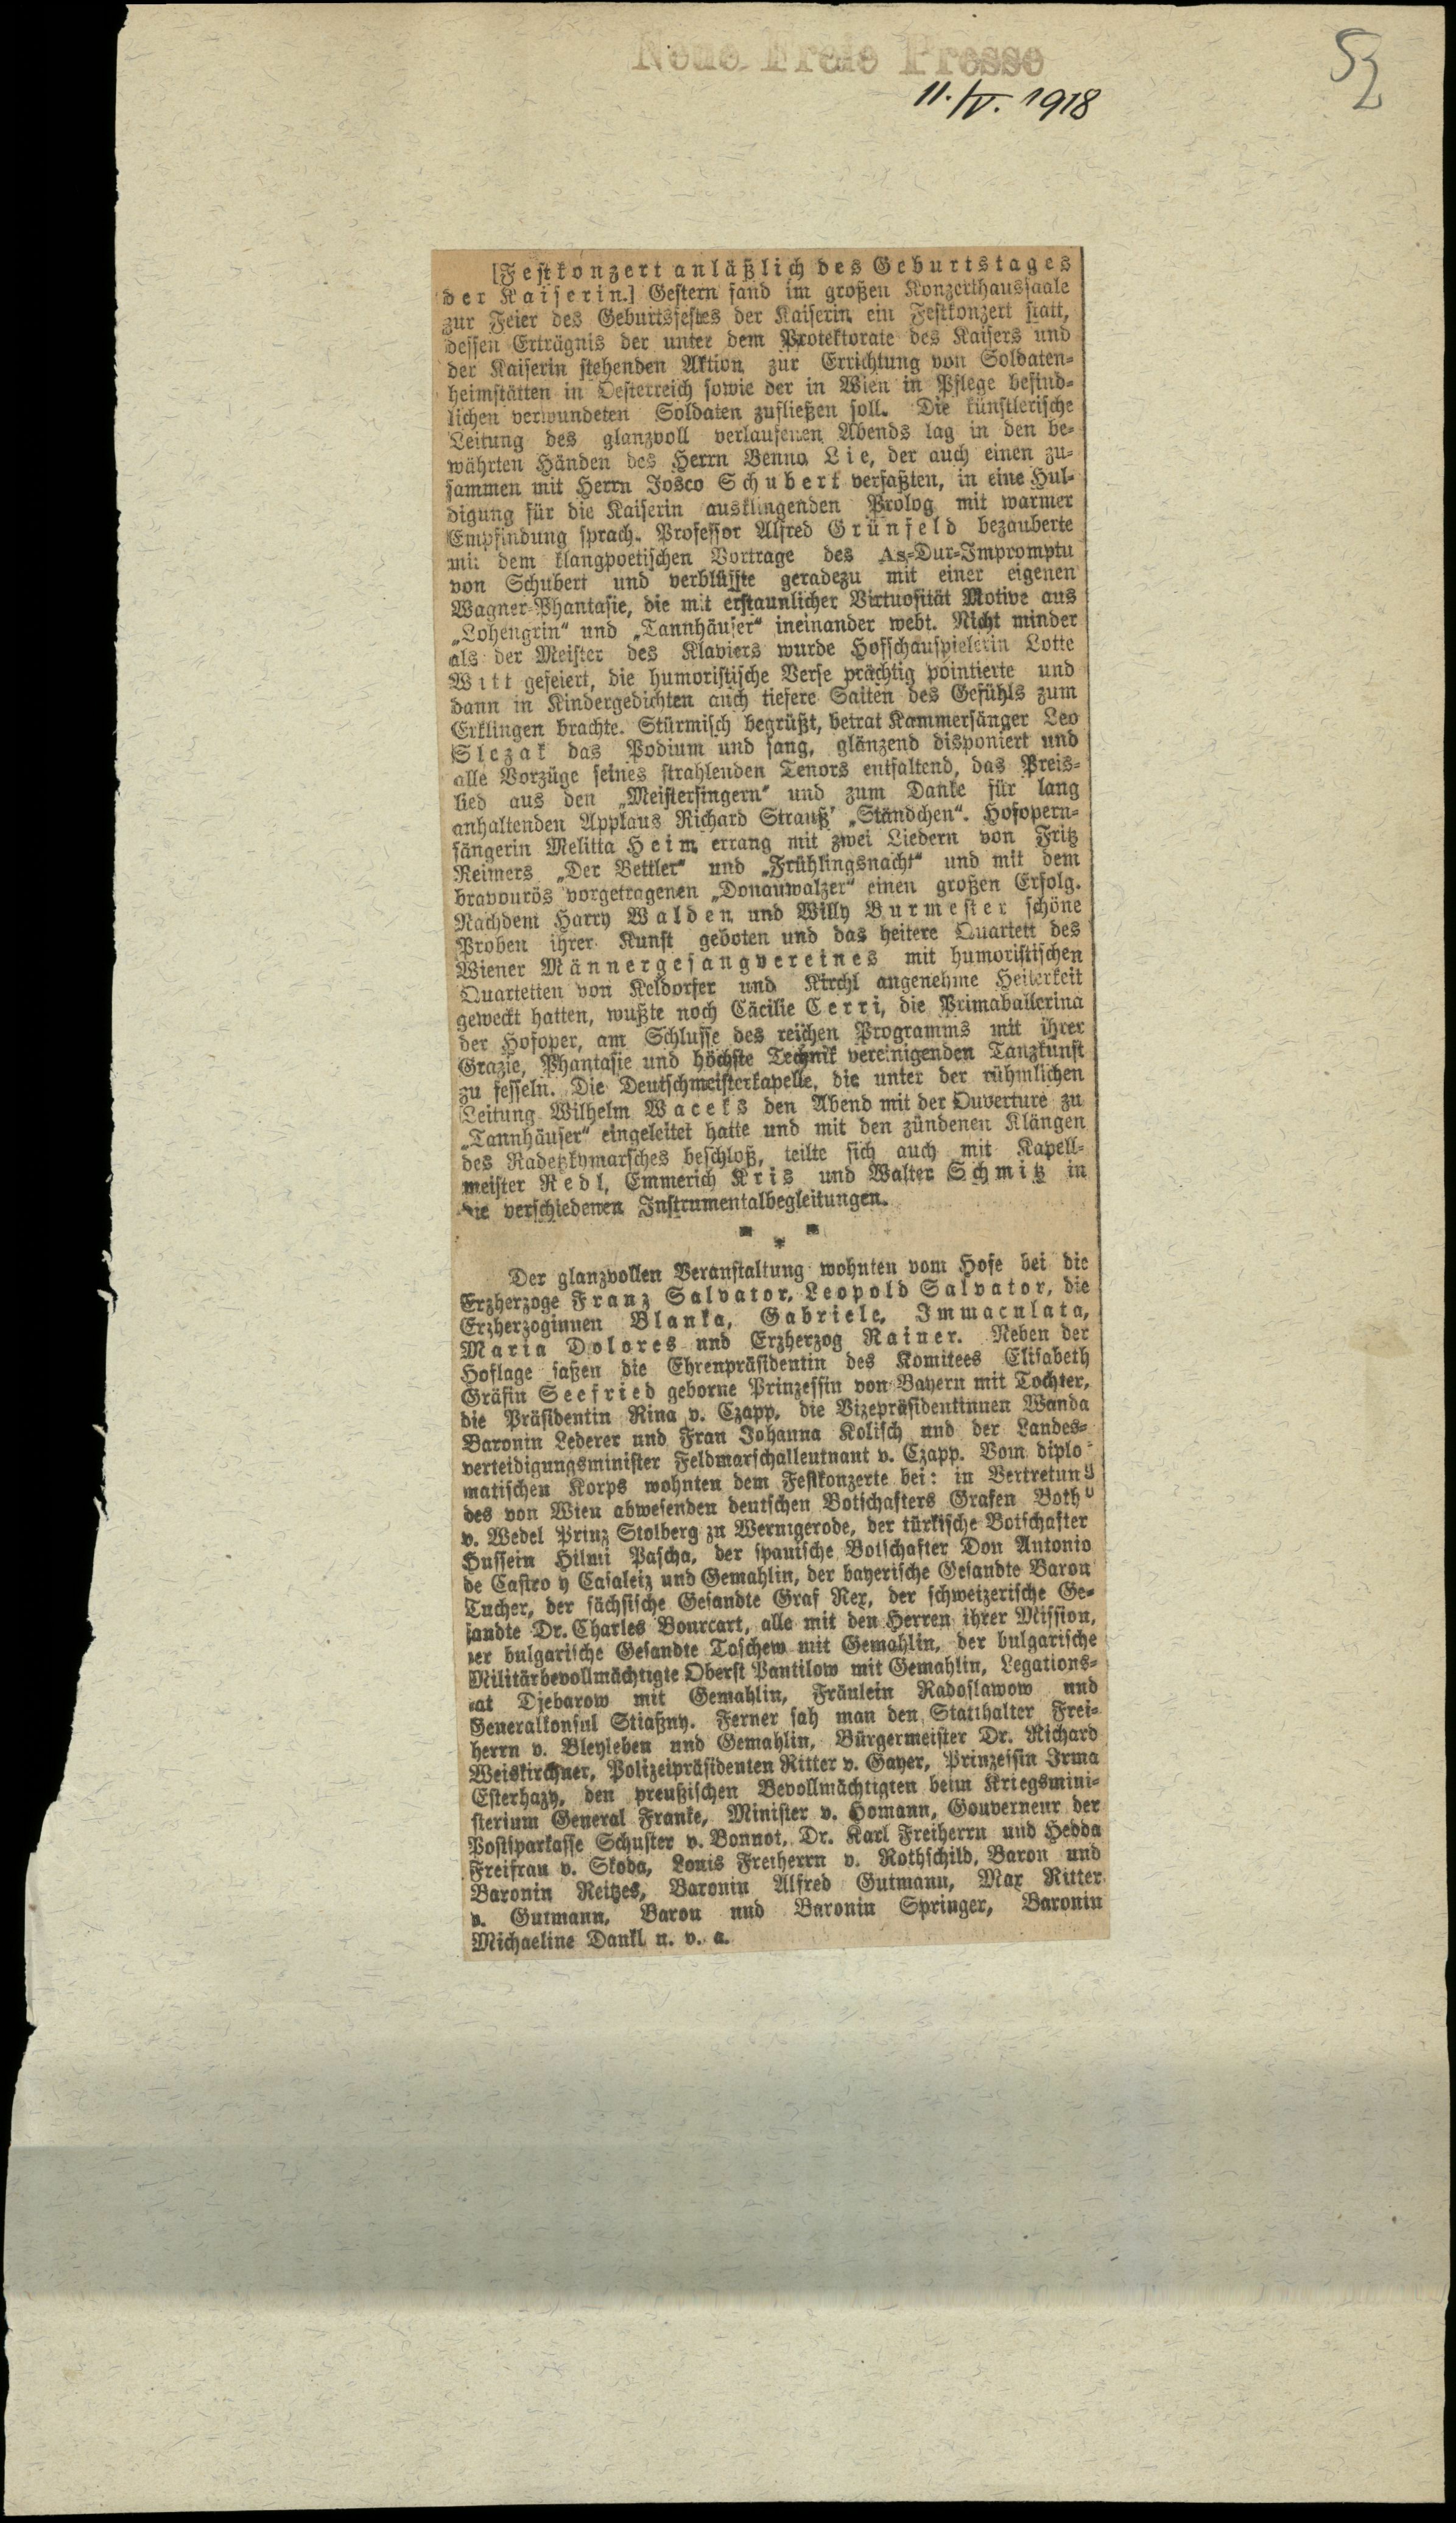 Neue Freie Presse
11./IV. 1918
[Festkonzert anläßlich des Geburtstages
der Kaiserin.] Gestern fand im großen Konzerthaussaale
zur Feier des Geburtsfestes der Kaiserin ein Festkonzert statt,
dessen Erträgnis der unter dem Protektorate des Kaisers und
der Kaiserin stehenden Aktion zur Errichtung von Soldaten-
heimstätten in Oesterreich sowie der in Wien in Pflege befind-
lichen verwundeten Soldaten zufließen soll. Die künstlerische
Leitung des glanzvoll verlaufenen Abends lag in den be-
währten Händen des Herrn Benno Lie, der auch einen zu-
sammen mit Herrn Josco Schubert verfaßten, in eine Hul-
digung für die Kaiserin ausklingenden Prolog mit warmer
Empfindung sprach. Professor Alfred Grünfeld bezauberte
mit dem klangpoetischen Vortrage des As-Dur-Impromptu
von Schubert und verblüffte geradezu mit einer eigenen
Wagner-Phantasie, die mit erstaunlicher Virtuosität Motive aus
„Lohengrin“ und „Tannhäuser“ ineinander webt. Nicht minder
als der Meister des Klaviers wurde Hofschauspielerin Lotte
Witt gefeiert, die humoristische Verse prächtig pointierte und
dann in Kindergedichten auch tiefere Saiten des Gefühls zum
Erklingen brachte. Stürmisch begrüßt, betrat Kammersänger Leo
Slezak das Podium und sang, glänzend disponiert und
alle Vorzüge seines strahlenden Tenors entfaltend, das Preis-
lied aus den „Meistersingern“ und zum Danke für lang
anhaltenden Applaus Richard Strauß' „Ständchen“. Hofopern-
sängerin Melitta Heim errang mit zwei Liedern von Fritz
Reimers „Der Bettler“ und „Frühlingsnacht“ und mit dem
bravourös vorgetragenen „Donauwalzer“ einen großen Erfolg.
Nachdem Harry Walden und Willy Burmester schöne
Proben ihrer Kunst geboten und das heitere Quartett des
Wiener Männergesangvereines mit humoristischen
Quartetten von Keldorfer und Kirchl angenehme Heiterkeit
geweckt hatten, wußte noch Cäcilie Cerri, die Primaballerina
der Hofoper, am Schlusse des reichen Programms mit ihrer
Grazie, Phantasie und höchste Technik vereinigenden Tanzkunst
zu fesseln. Die Deutschmeisterkapelle, die unter der rühmlichen
Leitung Wilhelm Waceks den Abend mit der Ouverture zu
„Tannhäuser“ eingeleitet hatte und mit den zündenen Klängen
des Radetzkymarsches beschloß, teilte sich auch mit Kapell-
meister Redl, Emmerich Kris und Walter Schmitz in
die verschiedenen Instrumentalbegleitungen.
* * *
Der glanzvollen Veranstaltung wohnten vom Hofe bei die
Erzherzoge Franz Salvator, Leopold Salvator, die
Erzherzoginnen Blanka, Gabriele, Immaculata,
Maria Dolores und Erzherzog Rainer. Neben der
Hoflage saßen die Ehrenpräsidentin des Komitees Elisabeth
Gräfin Seefried geborne Prinzessin von Bayern mit Tochter,
die Präsidentin Rina v. Czapp, die Vizepräsidentinnen Wanda
Baronin Lederer und Frau Johanna Kolisch und der Landes-
verteidigungsminister Feldmarschalleutnant v. Czapp. Vom diplo-
matischen Korps wohnten dem Festkonzerte bei: in Vertretung
des von Wien abwesenden deutschen Botschafters Grafen Botho
v. Wedel Prinz Stolberg zu Wernigerode, der türkische Botschafter
Hussein Hilmi Pascha, der spanische Botschafter Don Antonio
de Castro y Casaleiz und Gemahlin, der bayerische Gesandte Baron
Tucher, der sächsische Gesandte Graf Rex, der schweizerische Ge-
sandte Dr. Charles Bourcart, alle mit den Herren ihrer Mission,
der bulgarische Gesandte Toschew mit Gemahlin, der bulgarische
Militärbevollmächtigte Oberst Pantilow mit Gemahlin, Legations-
rat Djebarow mit Gemahlin, Fräulein Radoslawow und
Generalkonsul Stiaßny. Ferner sah man den Statthalter Frei-
herrn v. Bleyleben und Gemahlin, Bürgermeister Dr. Richard
Weiskirchner, Polizeipräsidenten Ritter v. Gayer, Prinzessin Irma
Esterhazy, den preußischen Bevollmächtigten beim Kriegsmini-
sterium General Franke, Minister v. Homann, Gouverneur der
Postsparkasse Schuster v. Bonnot, Dr. Karl Freiherrn und Hedda
Freifrau v. Skoda, Louis Freiherrn v. Rothschild, Baron und
Baronin Reitzes, Baronin Alfred Gutmann, Max Ritter
v. Gutmann, Baron und Baronin Springer, Baronin
Michaeline Dankl u. v. a.